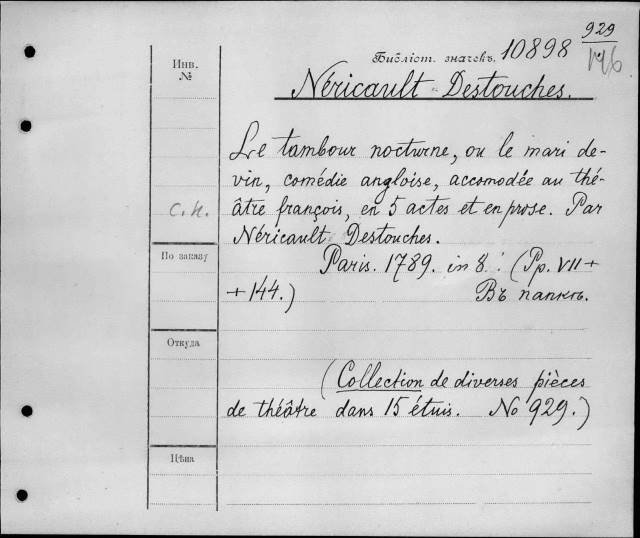 929
Инв.
№
Библіот. значекъ. 10898
Néricault Destouches.
Le tambour nocturne, ou le mari de-
vin, comédie angloise, accomodée au thé-
âtre françois, en 5 actes et en prose. Par
Néricault Destouches.
Paris. 1789. in 8. (Pp. VII +
+ 144.) Въ папкѣ.
По заказу
Откуда
(Collection de diverses pièces
de théâtre dans 15 étuis. No 929.)
Цѣна